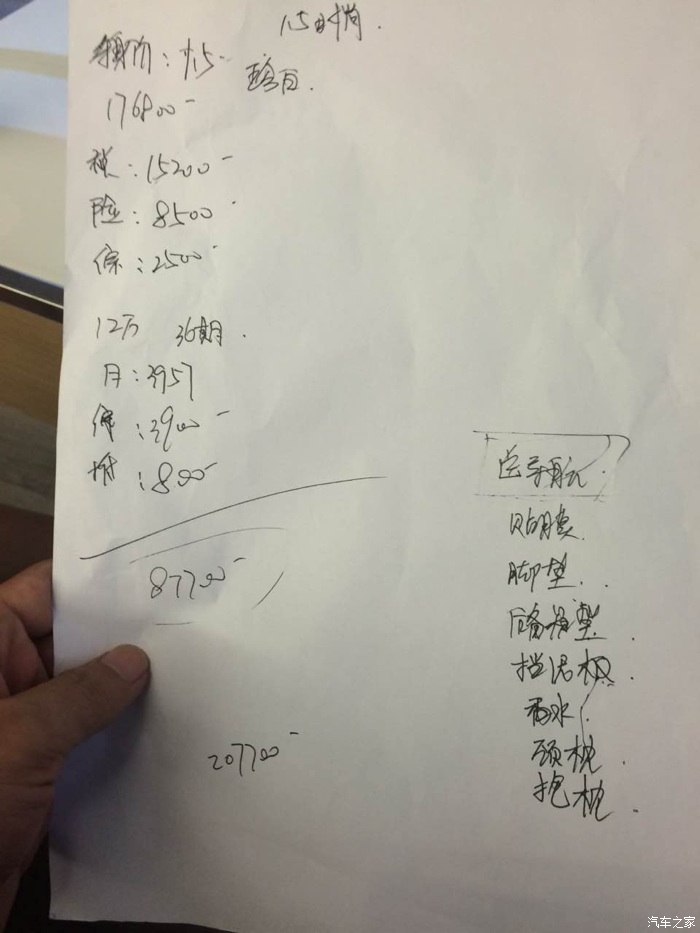 1.5时尚.
珍白.
176800-
税:15200-
险:8500-
保:2500-
12万 36期.
月:3957
保:3900-
附:800-
87700-
207700-
送导航.
贴膜.
脚垫.
后备箱垫.
挡泥板.
香水.
颈枕.
抱枕.
汽车之家